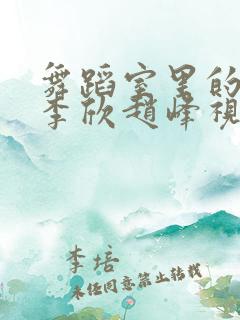 舞蹈室里的
李欣趙峰視
李培
未经同意禁止转载